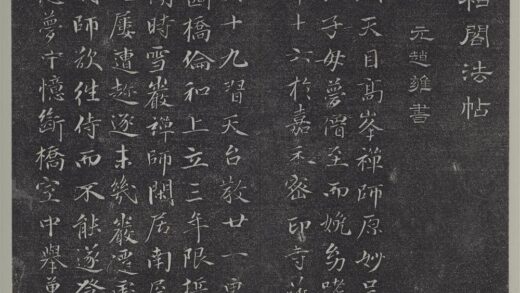 閣法帖
元趙雍書
天目高峯禪師原妙
子母夢僧至而娩幼嗜
十六於嘉禾密印寺
十九習天台教廿一更
斷橋倫和上立三年限
時雪巖禪師居南
屢遭趂逐未幾巖遷
師欲往侍而不能遂
夢中憶斷橋室中舉萬